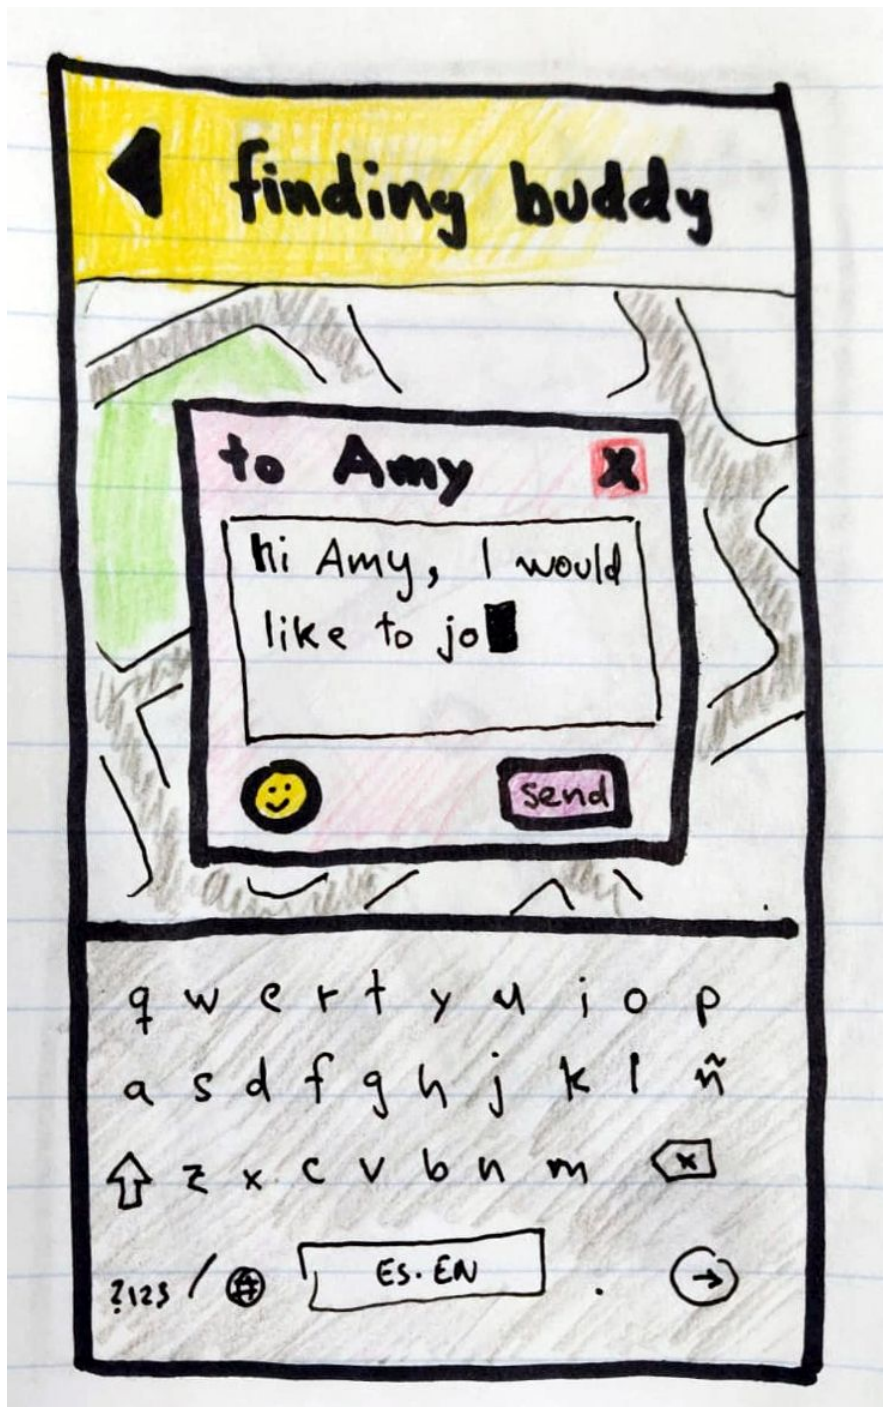 finding buddy
to Amy x
hi Amy, I would
like to jo
send
q w e r t y u i o p
a s d f g h j k l ñ
z x c v b n m x
?123 / ES. EN .